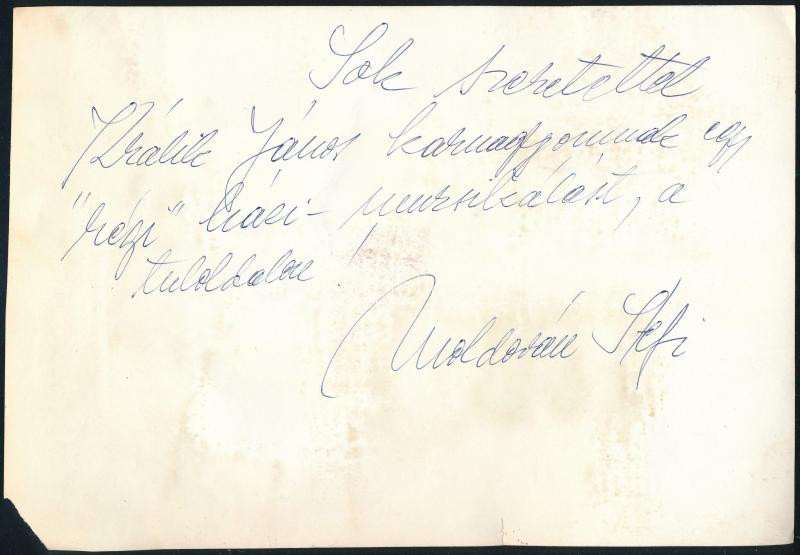 Sok szeretettel
Králik János karnagyomnak egy
"régi" házi-muzsikálást, a
túloldalon!
Moldován Stefi